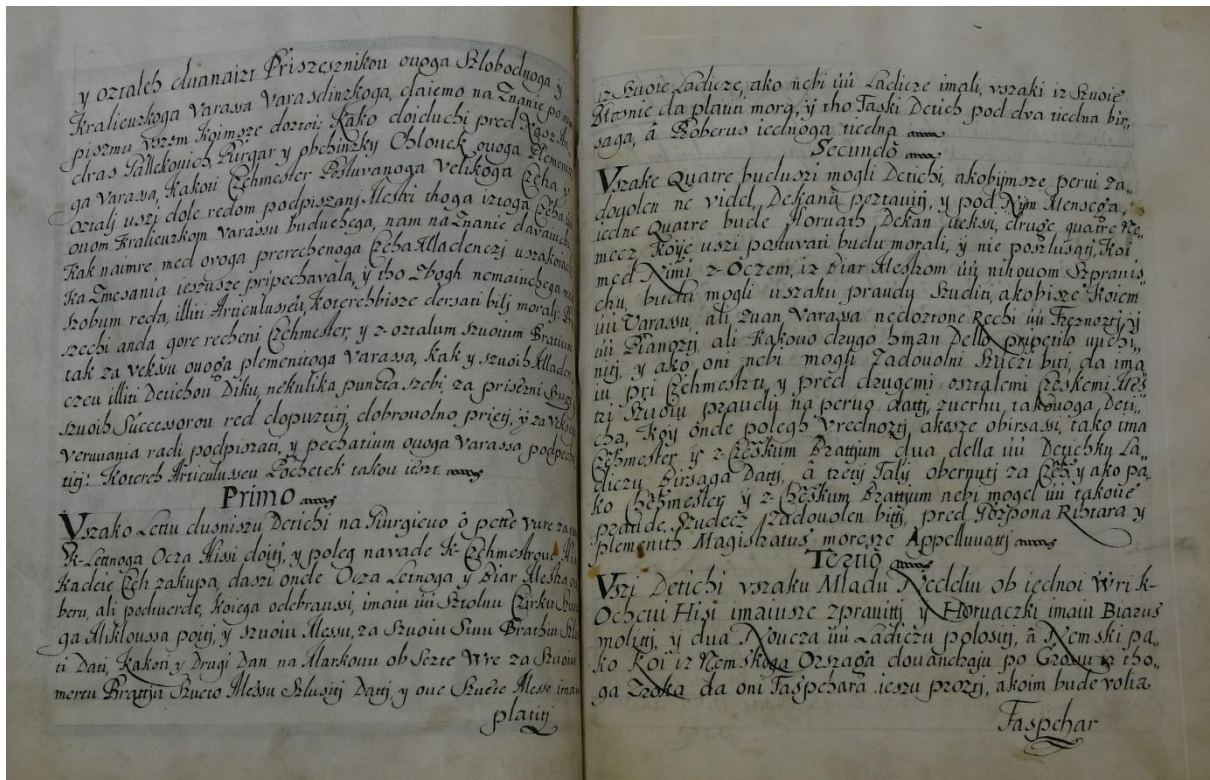 y oztaleh duanaizt Priszesznikou ovoga Szlobodnoga y
Kralieuzkoga Varassa Varasdinzkoga, daiemo na Znanie po
piszmu vszem Kojmsze doztoi: Kako doiduchi pred
dras Pallekovich, Purgar y obchinzky Chlouek ovoga Plemeni
ga Varassa, Kakoti Czehmester Postuvanoga Velikoga Czeha, y
oztalj uszi dole redom podpiszanj Mestri thoga iztoga Czeha
ovom Kralieuzkom Varassu buduchega, nam na Znanie davaiuchi
Kak naimre med ovoga prerechenoga Czeha Mladenczj uszakoiach
Ka Zmesania ieszusze pripechavala, ÿ tho Zbogh nemaiuchega
szobum reda, illiti Articulusseu, Koterehbisze dersati bilj moralj:
szechi anda gore recheni Czehmester, y z-oztalum szvoium Bratium
tak za veksu ovoga plemenitoga Varassa, Kak y szvoih Mladen
czeu illiti Detichou Diku, nekulika puncta szebi, za prisezni
szvoih Successorou red dopuztitj, dobrovolno prietj, ÿ za veks
veruvania radi podpiszati, y pechatium ovoga Varassa podpech
titj: Kotereh Articulusseu Pochetek takou iezt.
Primo
Vszako Letiu dusniszu Detichi na Giurgieuo ô pette vure
K-Letnoga Ocza Hissi doitj, y poleg navade K-Czehmestrou
Kadeie Czeh zakupa, daszi onde Ocza Letnoga y Biar Mestra
beru, ali podtverde, koiega odebraussi, imaiu ùù Sztolnu Czirkvu
ga Mikloussa poitj, y szvoiu Messu, za Szvoiu Sivu Brathiu
ti Dati, Kakoti y Drugi Dan na Markouu ob Sezte Wre za Szvoiu
mertvu Brattju Szveto Messu Szlusitj Dattj, y ove Szvete Messe imaiu
platitj
iz Szvoie Ladicze, ako nebi ùù Ladicze imali, vszaki iz Szvoie
Mosnie da platiti mora, ÿ tho Taski Detich pod dva tiedna bir„
saga, â Roberus iednoga tiedna
Secundò
Vszake Quatre buduszi mogli Detichi, akobijmsze pervi za„
dovolen ne videl, Dekana poztavitj, y pod Nijm Mensega,
iedne Quatre bude Horvath Dekan veksi, druge quatre Ne„
mecz Koÿe uszi postuvati budu morali, ÿ nie poszlusatj, Koi
med Nimi z-Oczem, iz Biar Mestrom ùù nihovom Szpravis
chu, budu mogli vszaku pravdu Szuditi, akobisze Koiem
ùù Varassu, ali Zvan Varassa nedoztone Rechi ùù Treznoztj, ÿ
ùù Pianoztj, ali Kakovo drugo hman Dello pripetilo vuchi„
nitj, y ako oni nebi mogli Zadovolni Szuczi biti, da ima
iu pri Czehmestru, y pred drugemi osztalemi Czeskemi Mes
tri Szvoiu pravdu na pervo dattj, zverhu takovoga Deti„
cha, Koy onde polegh Vrednoztj, akasze obirsassi, tako ima
Czehmester iz z-Czeskum Brattjum dua della ùù Detichku La„
diczu Birsaga Dattj, â tretij Talij obernutj za Czeh, y ako pa„
ko Czehmester y z-Czeskum Brattjum nebi mogel ùù takove
pravde Szudecz zadovolen bitij, pred Gozpona Rihtara y
plemenith Magistratus moresze Appelluvatj
Tertiò
Vszi Detichi vszaku Mladu Nedeliu ob iednoi Wri K-
Ochevi Hisi imaiusze zpravitj y Horvaczki imaiu Biatus
molitj, ÿ dua Novcza ùù Ladiczu polositj, â Nemski pa„
ko Koi iz Nemskoga Orszaga dovandraju po Groszu iz tho„
ga Zroka da oni Taspchara ieszu proztj, akoim bude volia
Taspchar